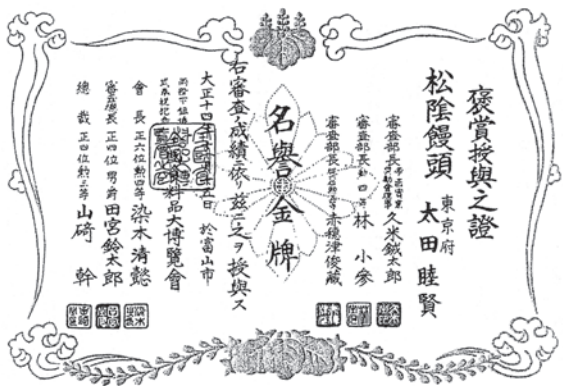 褒賞授與之證
松陰饅頭
東京府
太田睦賢
審査部長
久米鉞太郎
審査部長
林小參
審査部長
赤穗津俊蔵
名譽金牌
右審査ノ成績ニ依リ茲ニ之ヲ授與ス
大正十四年
於富山市
全國食料品大博覽會
會長正六位勲四等染木清懿
審査總長正四位男爵田宮鈴太郎
總裁正四位勲三等山﨑幹